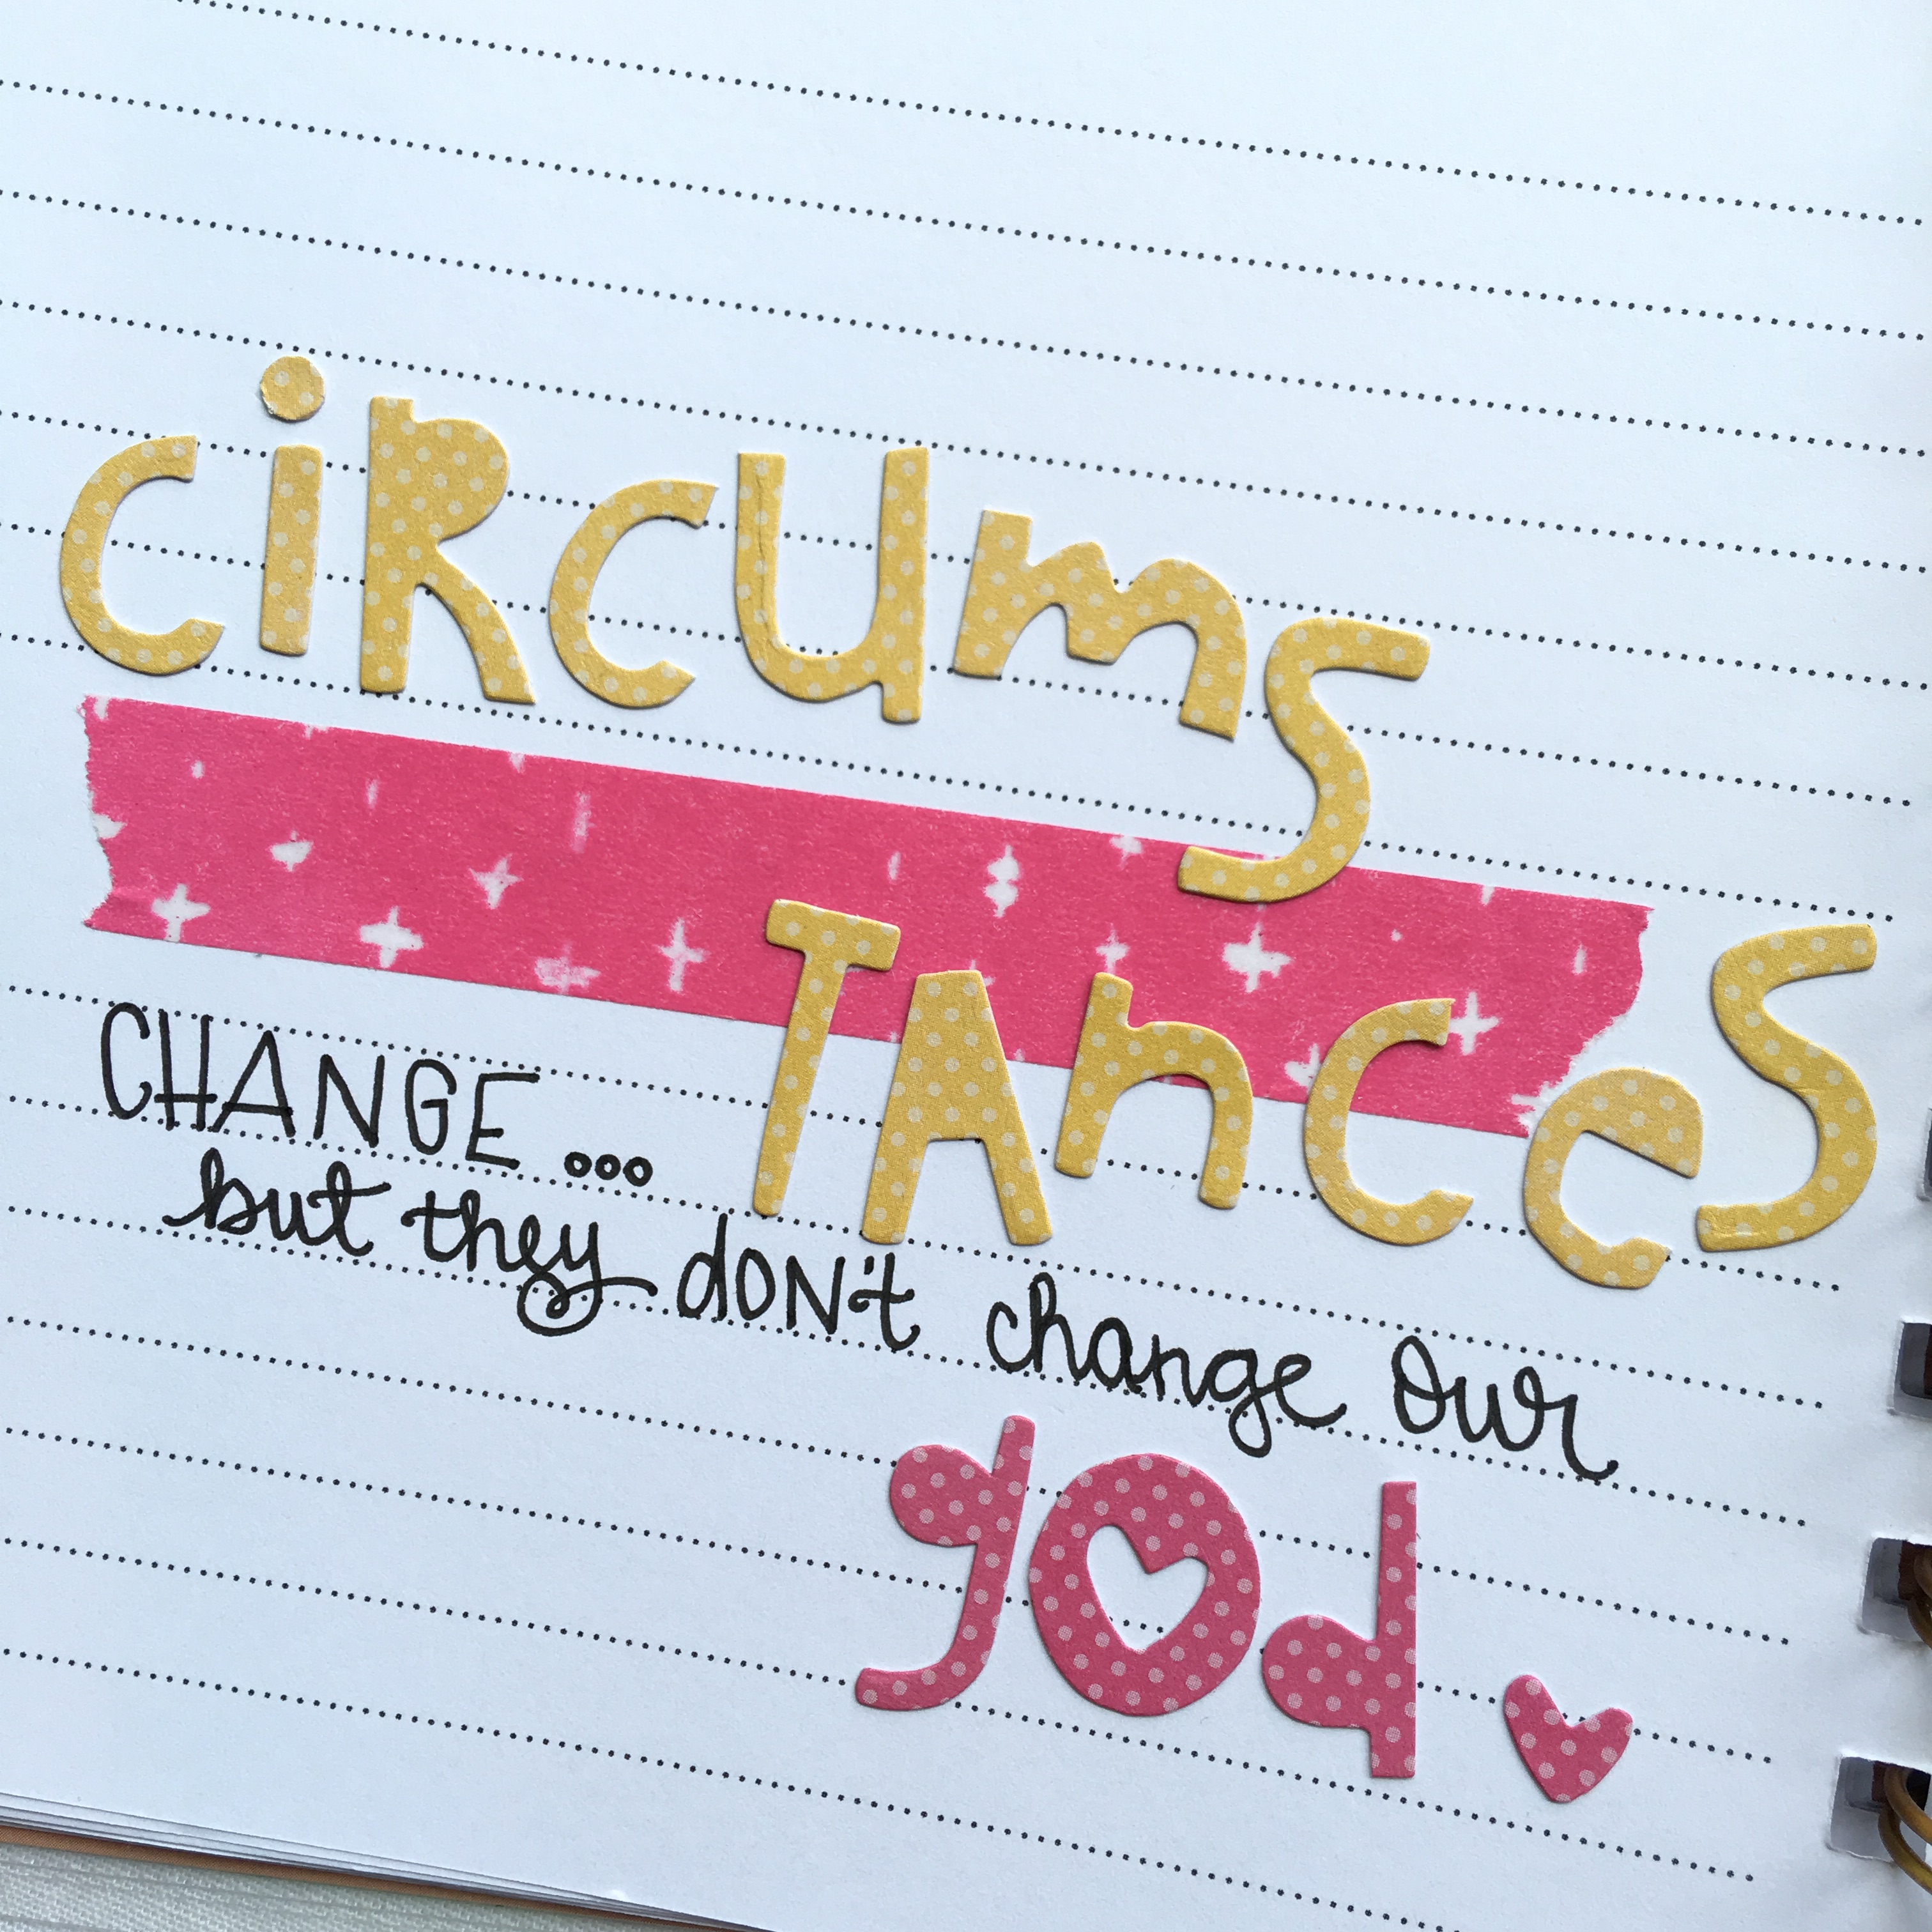 ciRcums
TAnces
CHANGE...
but they don't change our
god